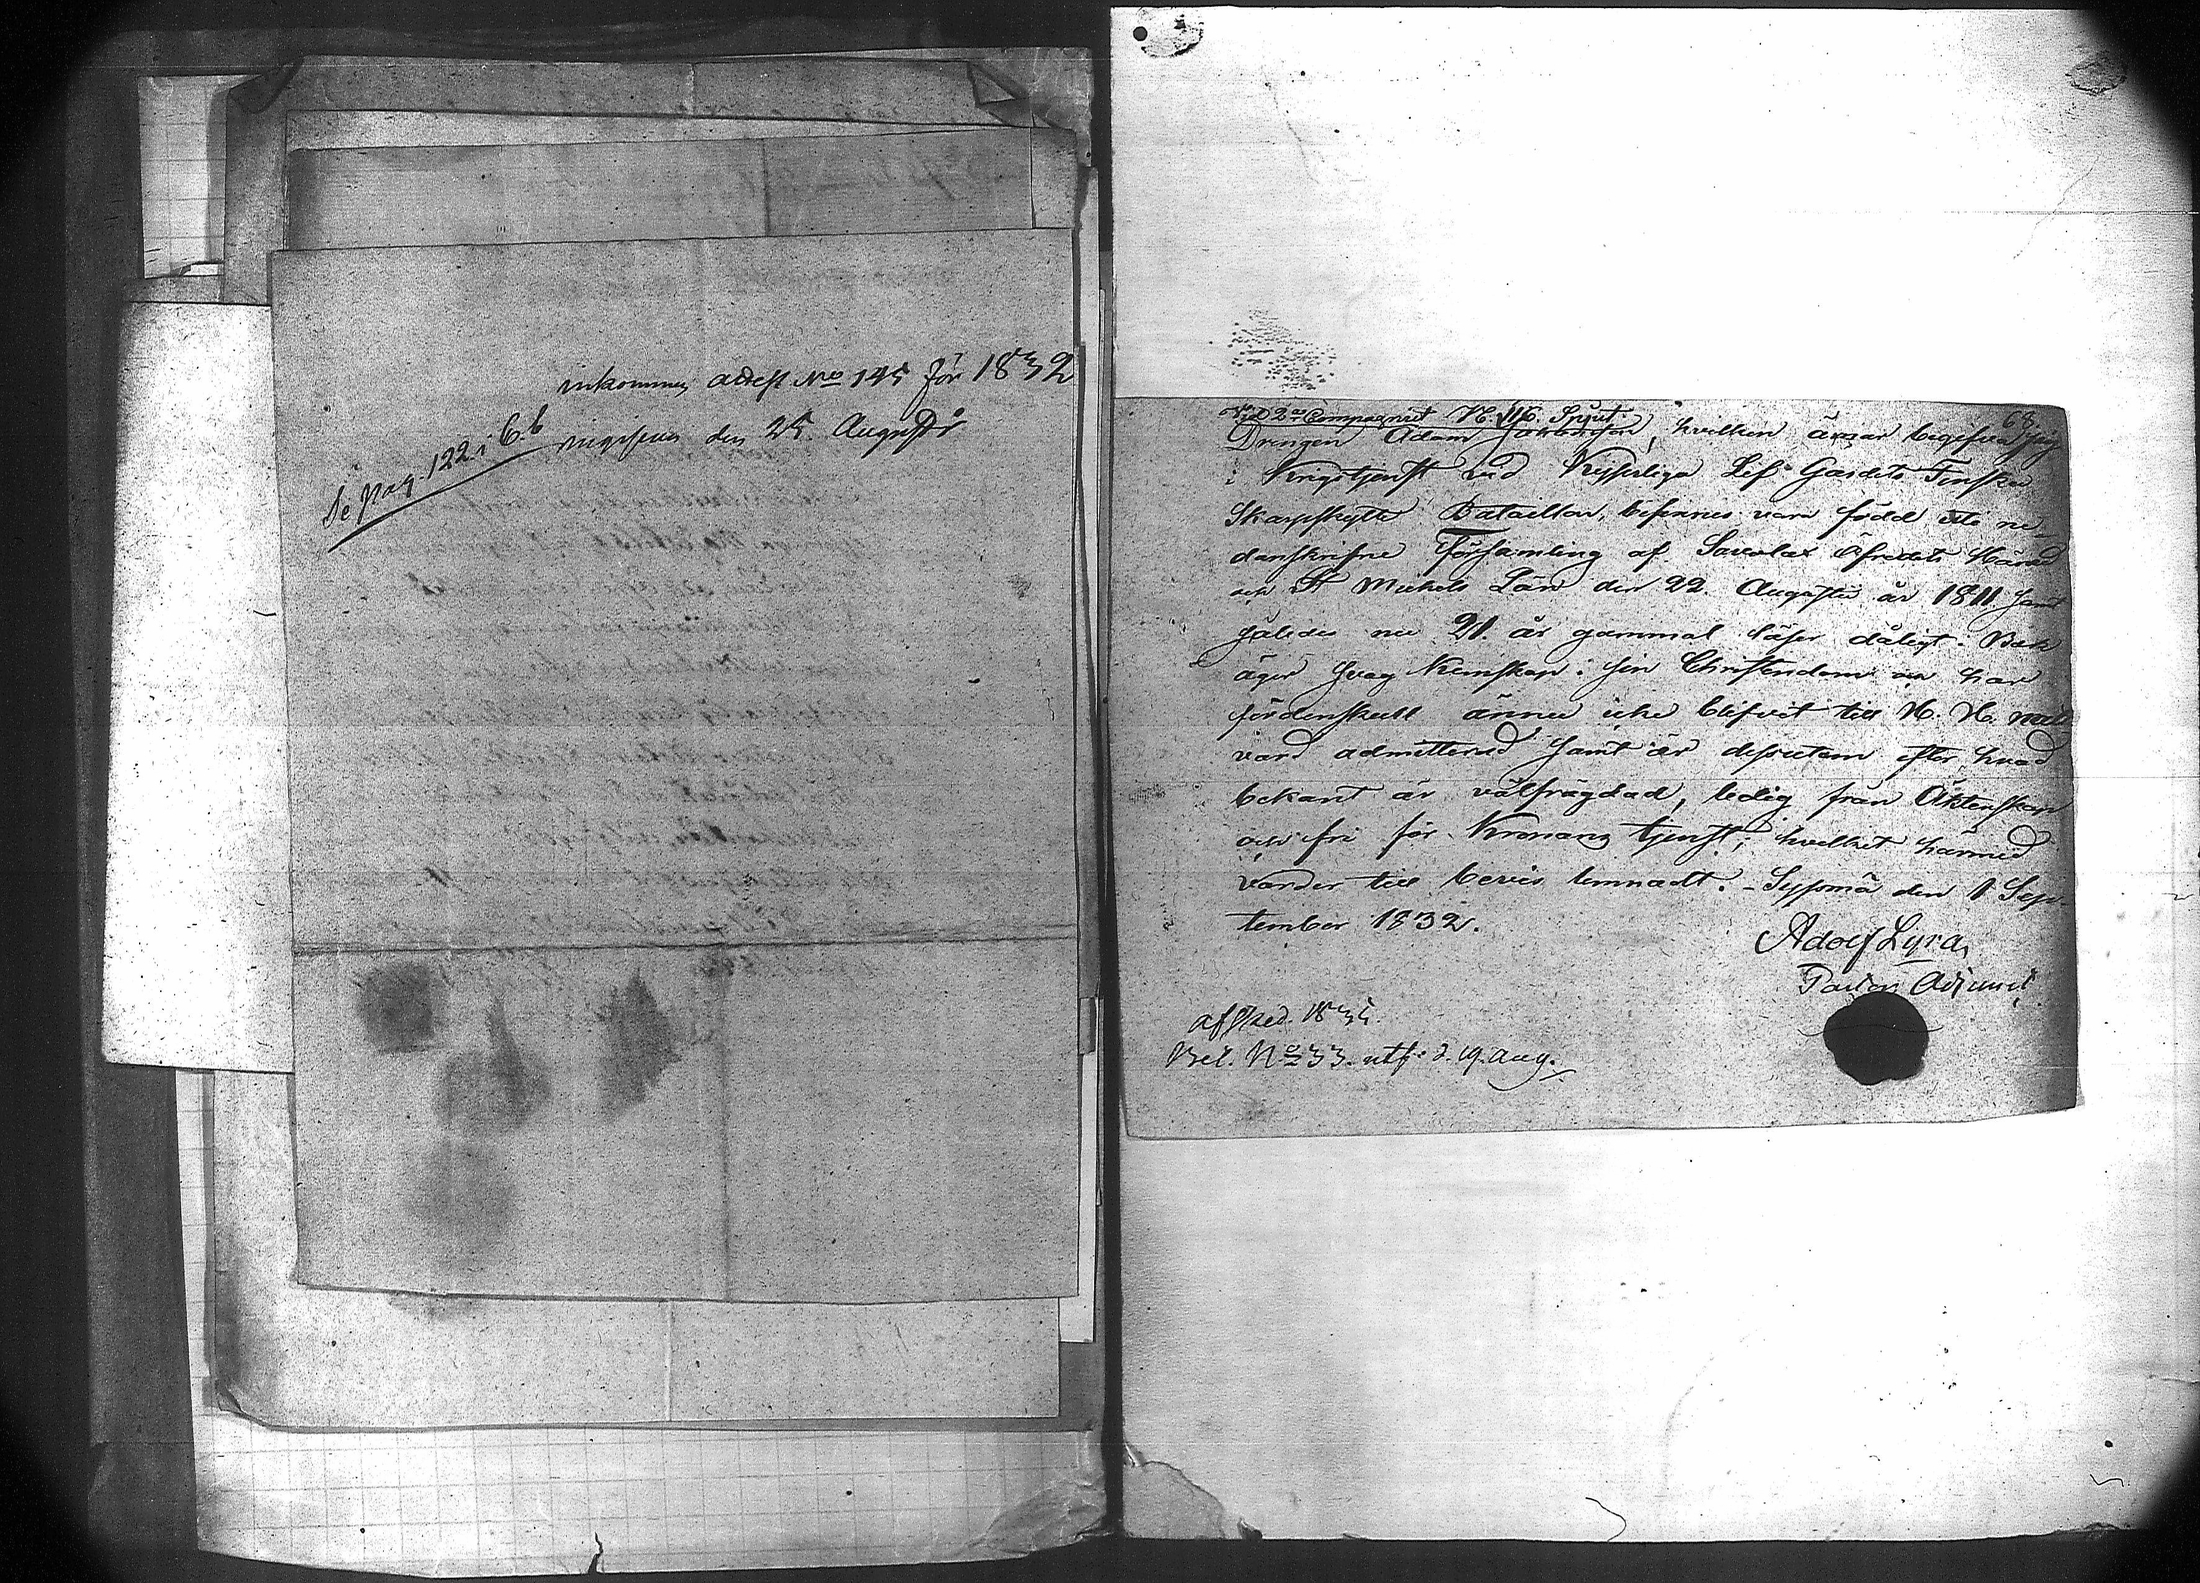 inkommen attest No 145 för 1832
Se pag. 122 i C.b
den 25. Augusti
68.
vid 2a Compagniet N. 116. Spjut
Drengen Adam Johansson, hvilken ärnar begifva sig
i Krigstjenst vid Kejserliga Lif Gardets Finska
Skarpskytte Bataillon, befinnes vara född uti ne-
danskrifne Församling af Savolax Öfredels Härad
och St Michels Län den 22. Augusti år 1811 samt
således nu 21. år gammal läser dåligt i Bok
äger svag Kunskap i sin Christendom och har
fördenskull ännu icke blifvit till H. H. natt
vard admitterad samt är dessutom efter hvad
bekant är välfrägdad, ledig från Äktenskap
och fri för Kronans tjenst; hvilket härmed
varder till bevis lemnadt. - Syssmä den 1 Sep-
tember 1832.
Adolf Lyra,
Pastors Adjunct.
afsked. 1835.
Bet. No 33. utf. d. 19. Aug.